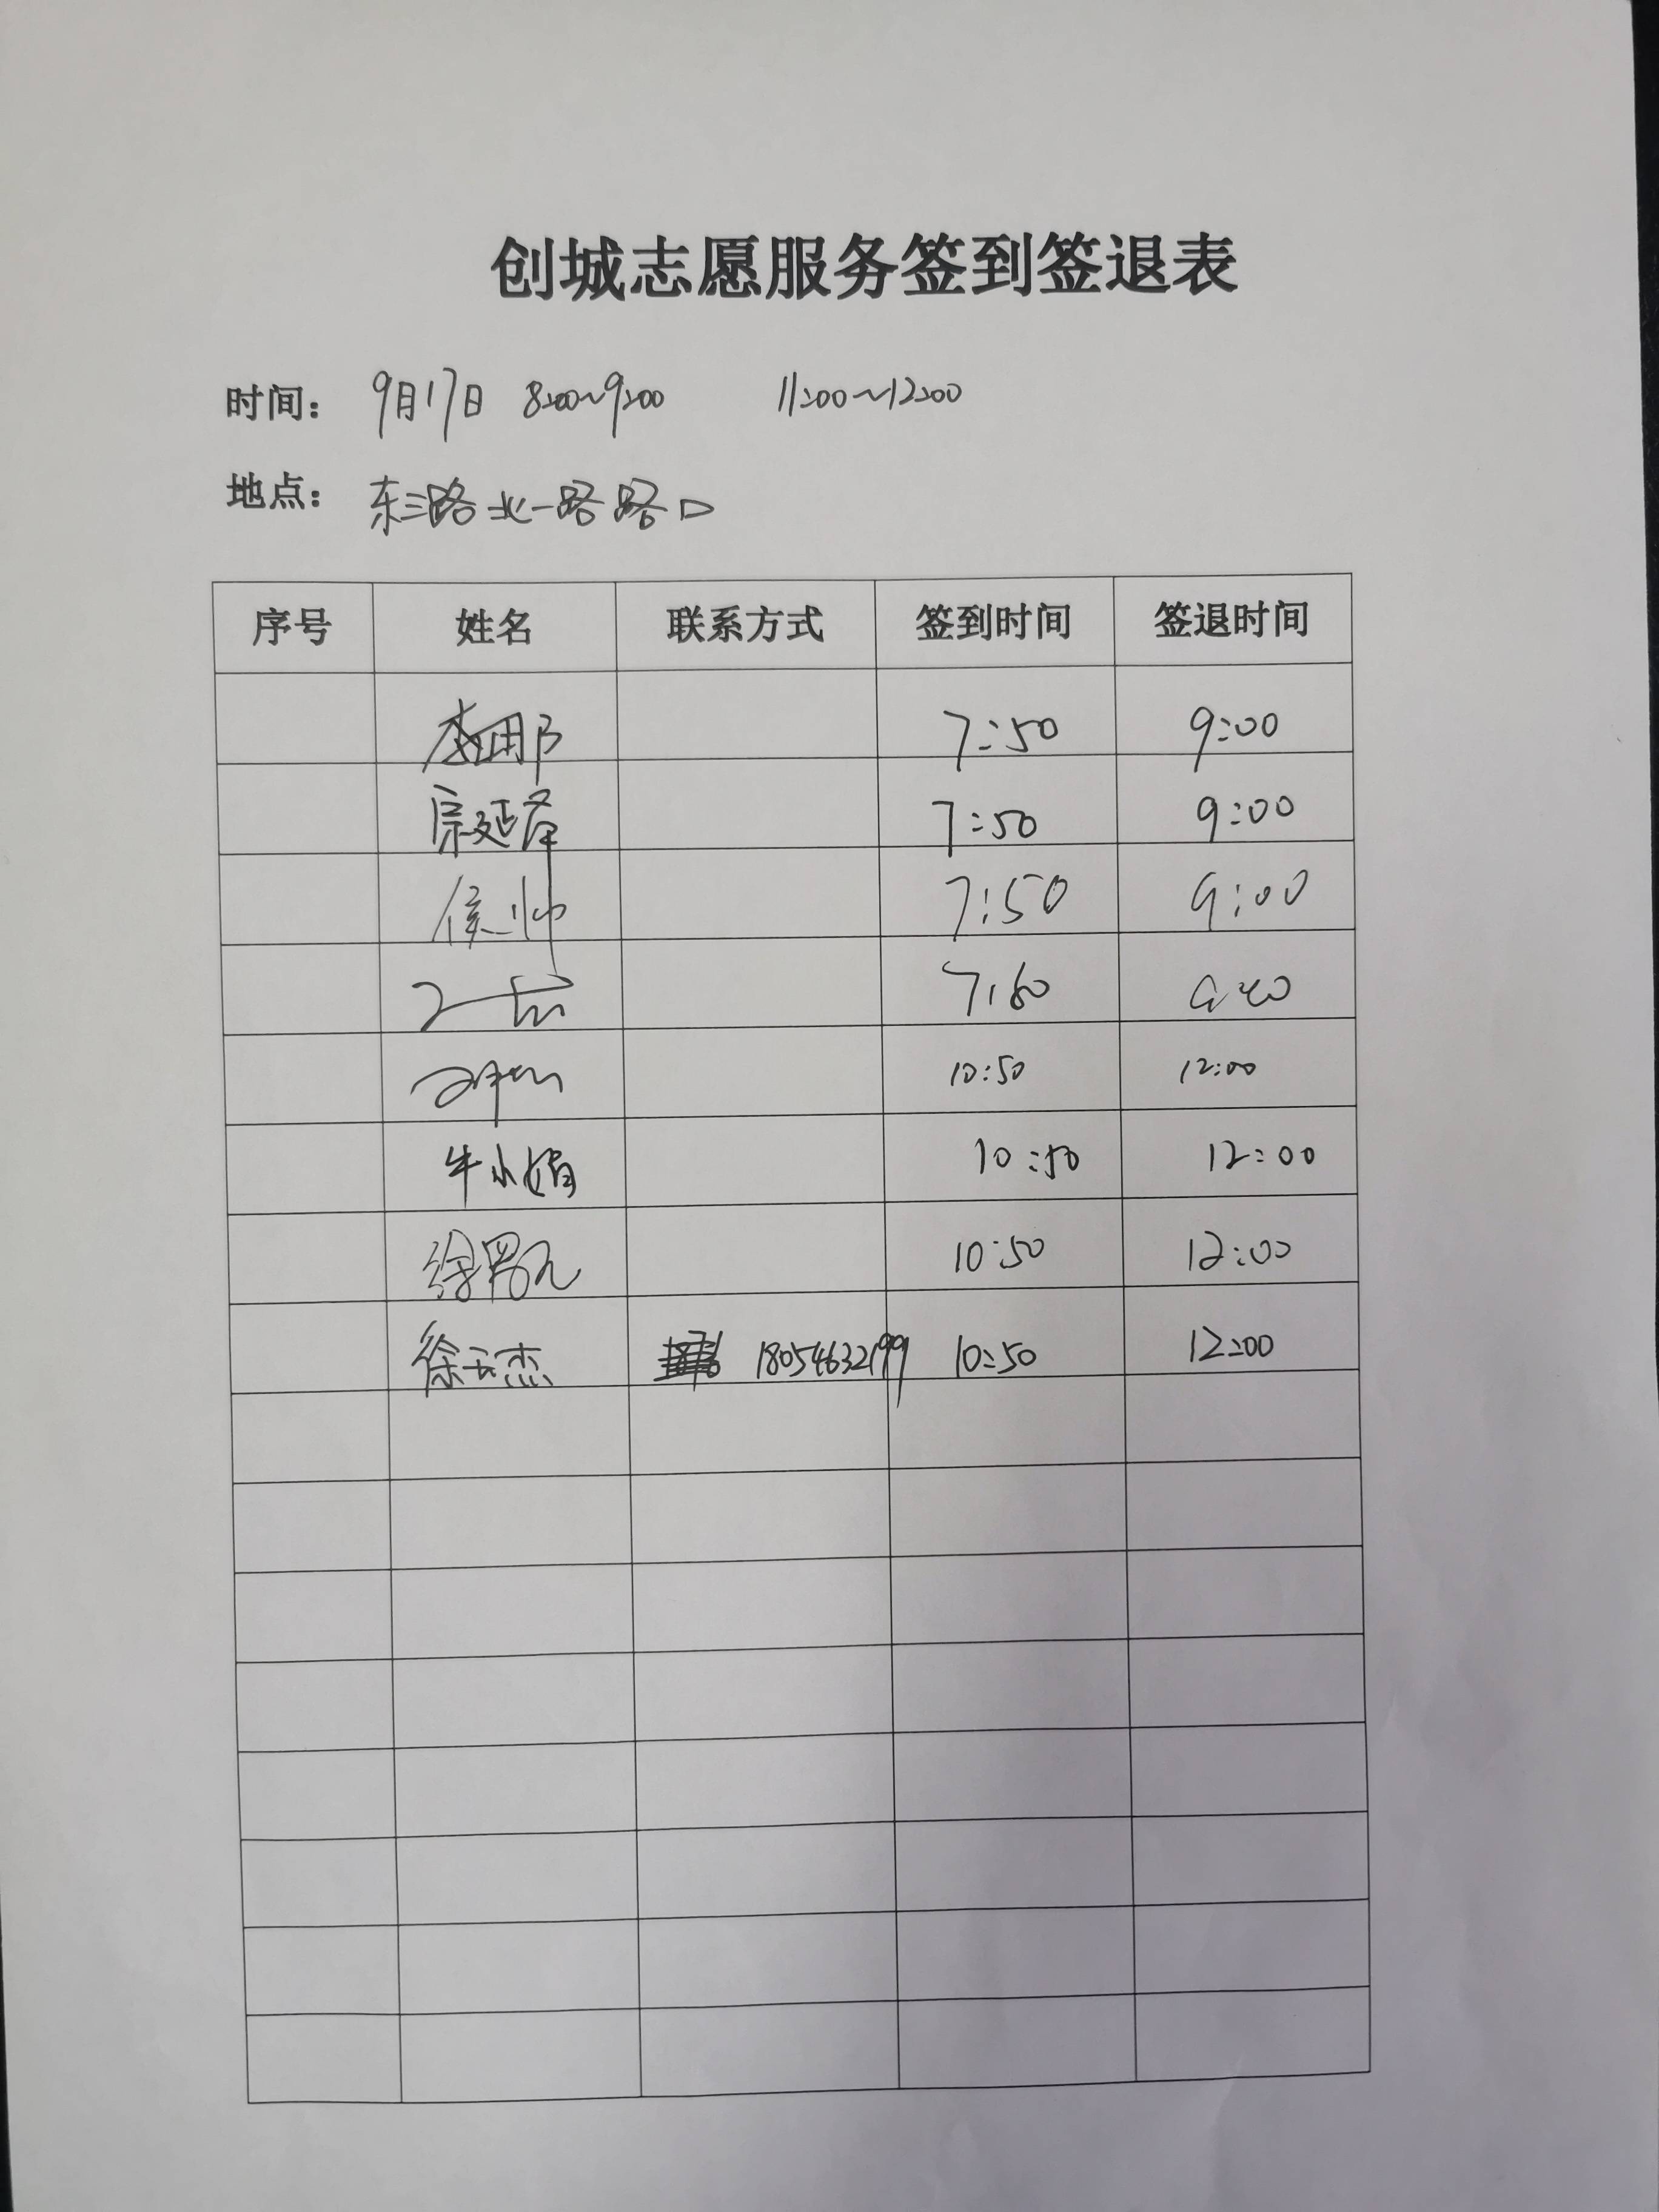 创城志愿服务签到签退表
时间： 9月17日 8:00~9:00 11:00~12:00
地点： 东三路北一路路口
序号 姓名 联系方式 签到时间 签退时间
7:50 9:00
宗延泽 7:50 9:00
侯帅 7:50 9:00
7:50 9:00
10:50 12:00
牛小娟 10:50 12:00
10:50 12:00
徐云杰 18054632199 10:50 12:00